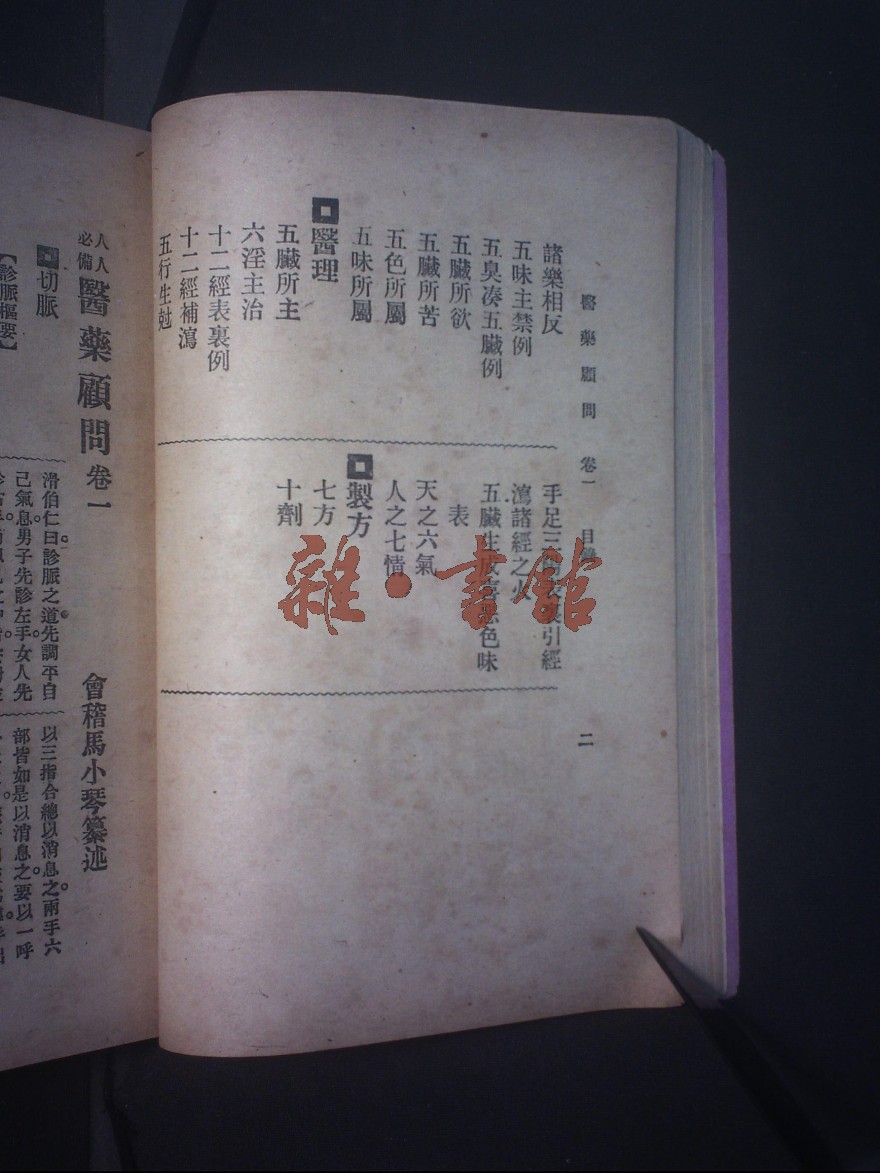 醫藥顧問 卷一 目錄
二
諸藥相反
五味主禁例
五臭湊五臟例
五臟所欲
五臟所苦
五色所屬
五味所屬
醫理
五臟所主
六淫主治
十二經表裏例
十二經補瀉
五行生尅
手足三陽表裏引經
瀉諸經之火
五臟生成喜惡色味
表
天之六氣
人之七情
製方
七方
十劑
雜·書館
人人必備 醫藥顧問 卷一
會稽馬小琴纂述
切脈
【診脈樞要】
滑伯仁曰。診脈之道。先調平自
己氣息。男子先診左手。女人先
以三指合總以消息之。兩手六
部皆如是以消息之。要以一呼